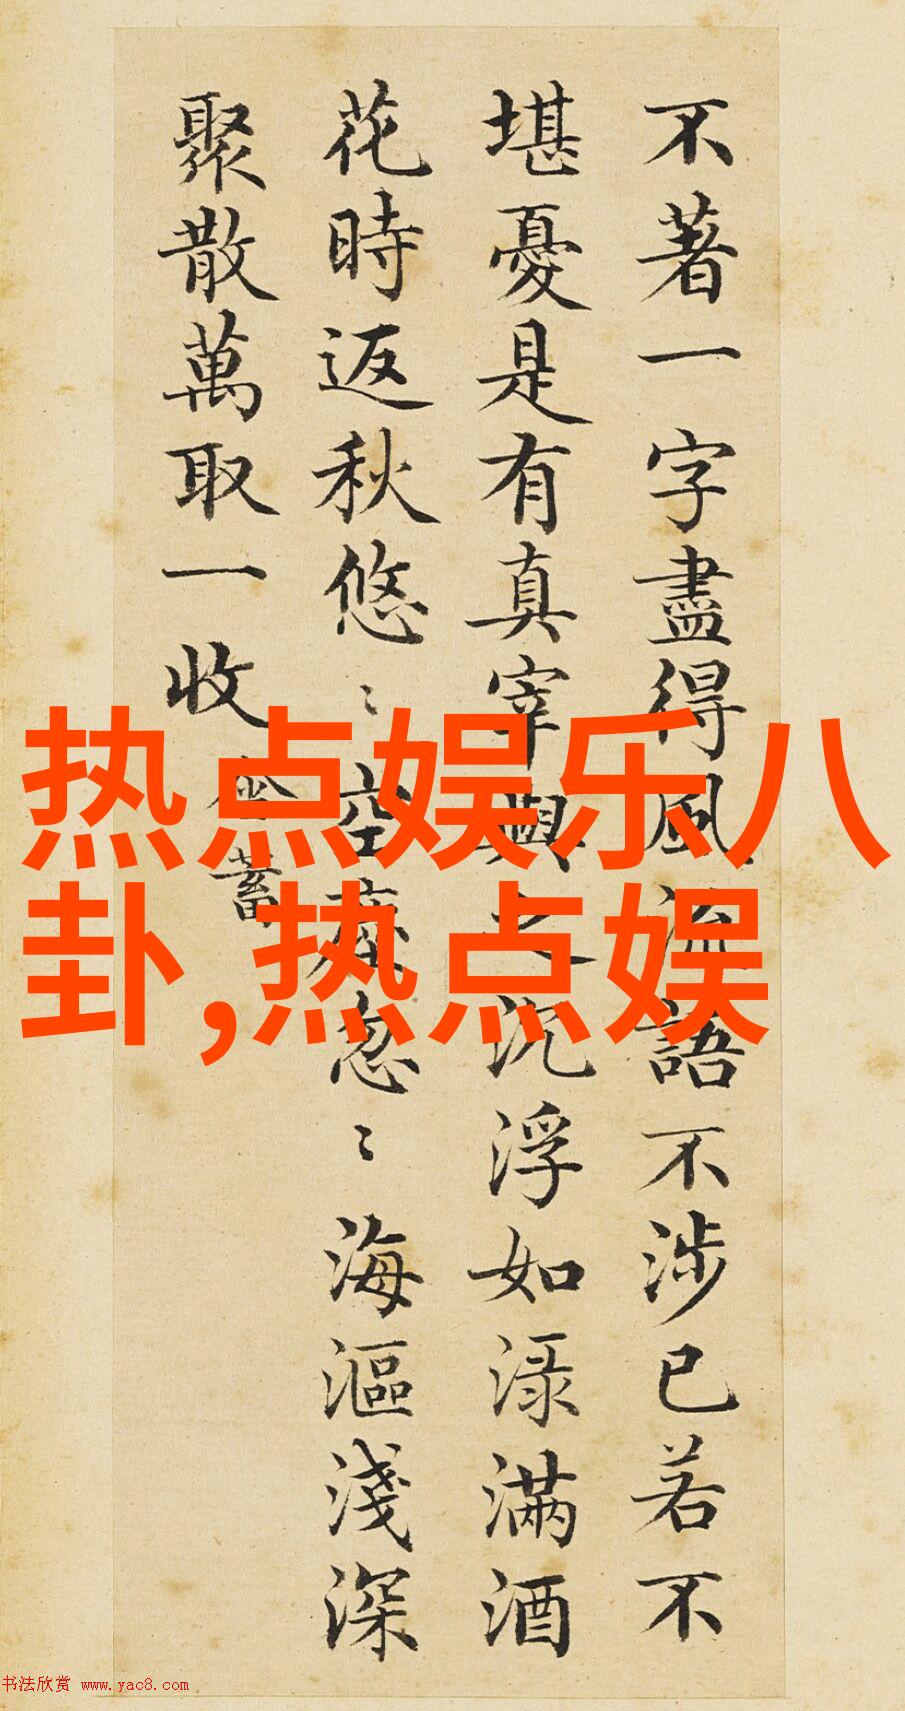 不著一字盡得風流語不涉已若不
堪憂是有真宰與之沉浮如渌滿酒
花時返秋悠〻空塵忽〻海漚淺深
聚散萬取一收
蓄
热点娱乐八
卦,热点娱
书法欣赏 www.yac8.com